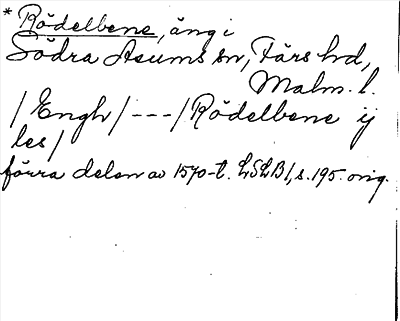 * Rödelbene, äng i
Södra Asums sn, Färs hd,
Malm. l.
/Engh/ --- / Rödelbene ij
les/
förra delen av 1570-t. LSLB I, s. 195. orig.